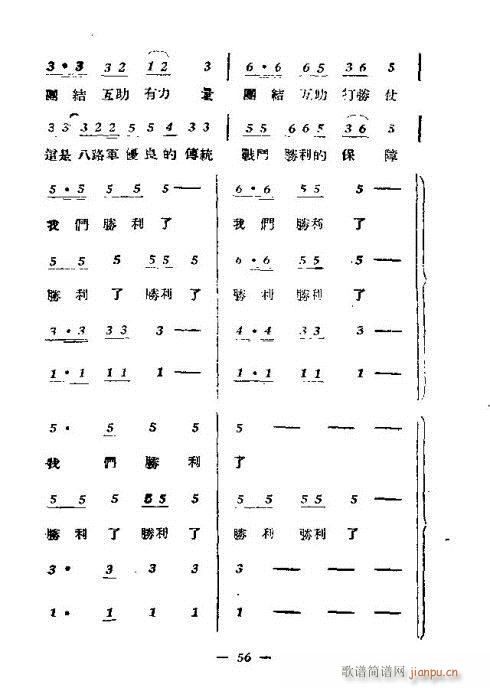 3·3 32 12 3 | 6·6 65 36 5
團結 互助 有力 量 團結 互助 打勝 仗
33 322 554 33 | 55 665 36 5
這是八路軍優良的傳統 戰鬥 勝利的 保 障
5·5 5 5 5 — | 6·6 55 5 —
我們勝利了 我們勝利了
5 5 5 55 5 | 6·6 55 55 5
勝利了勝利了 勝利 勝利 勝利了
3·3 33 3 — | 4·4 33 3 —
1·1 11 1 — | 1·1 11 1 —
5· 5 5 5 | 5 — — —
我 們 勝 利 了
5 5 5 55 5 | 5 5 55 5
勝利了勝利了 勝利 勝利了
3· 3 3 3 | 3 — — —
1· 1 1 1 | 1 — — —
— 56 —
歌谱简谱网
jianpu.cn